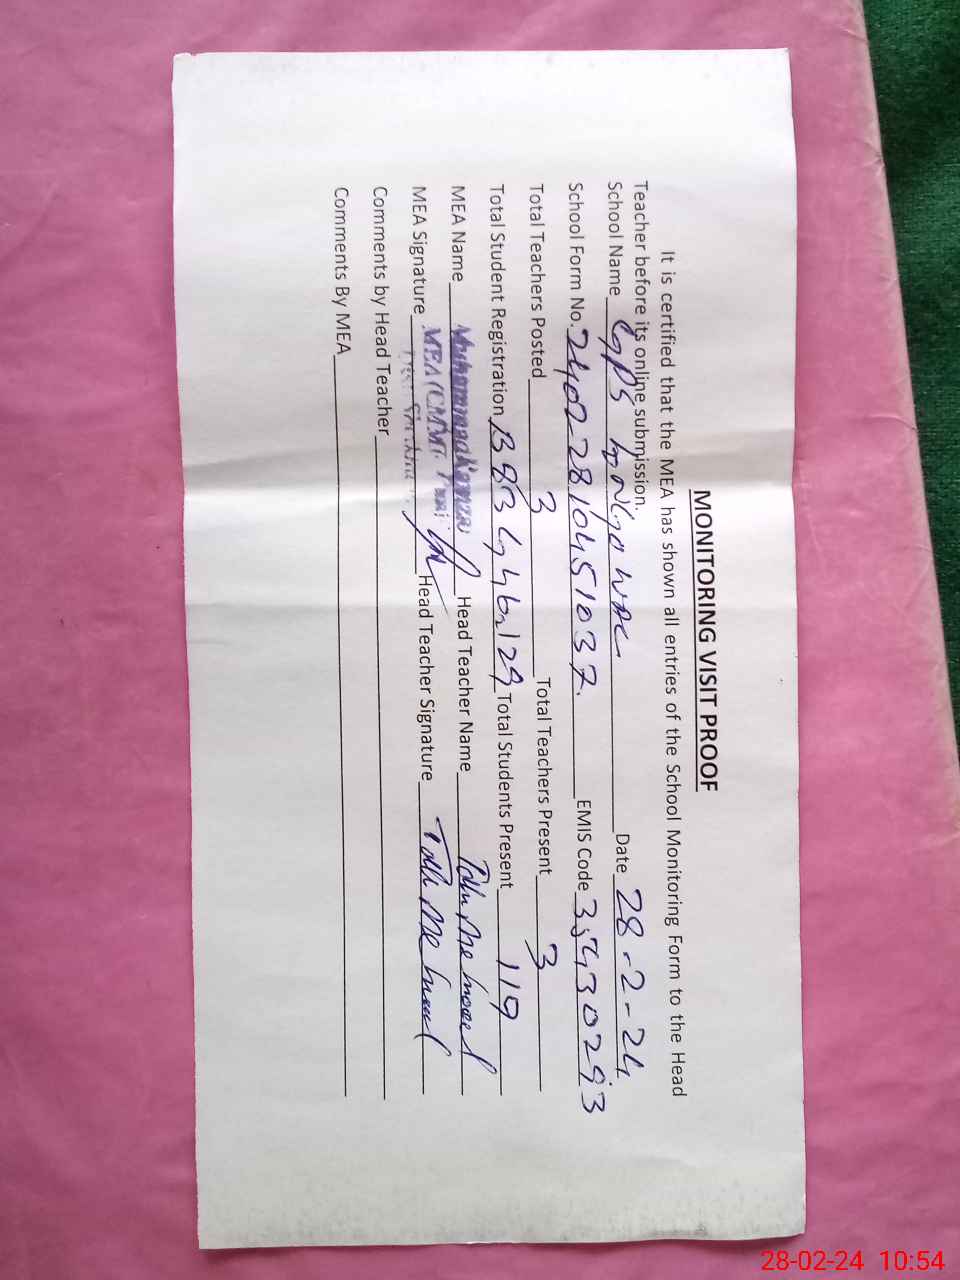 MONITORING VISIT PROOF
It is certified that the MEA has shown all entries of the School Monitoring Form to the Head
Teacher before its online submission.
School Name GPS Date 28-2-24
School Form No. 2402281041037 EMIS Code 35430293
Total Teachers Posted 3 Total Teachers Present 3
Total Student Registration B 83 G 46, 129 Total Students Present 119
MEA Name Muhammad Head Teacher Name
MEA Signature MEA (CMMF Head Teacher Signature
Comments by Head Teacher
Comments By MEA
28-02-24 10:54